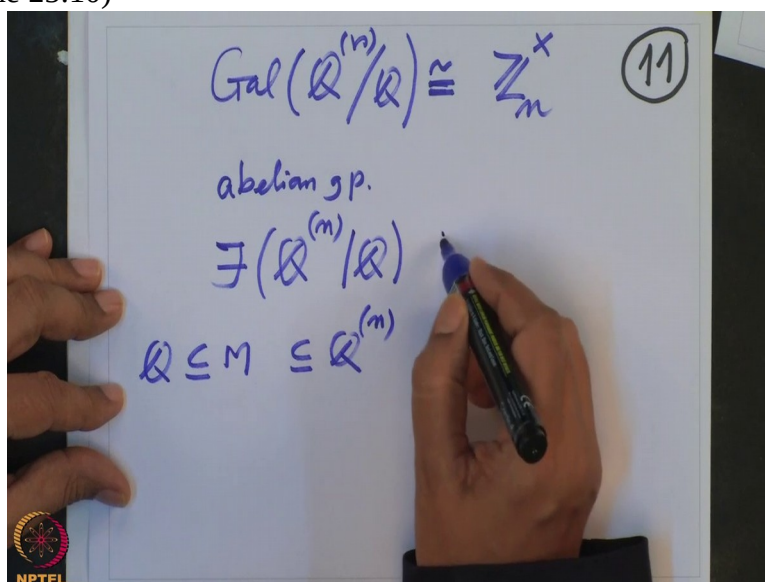 Gal(ℚ⁽ⁿ⁾/ℚ) ≅ ℤₙˣ
11
abelian gp.
∃(ℚ⁽ⁿ⁾|ℚ)
ℚ ⊆ M ⊆ ℚ⁽ⁿ⁾
NPTEL